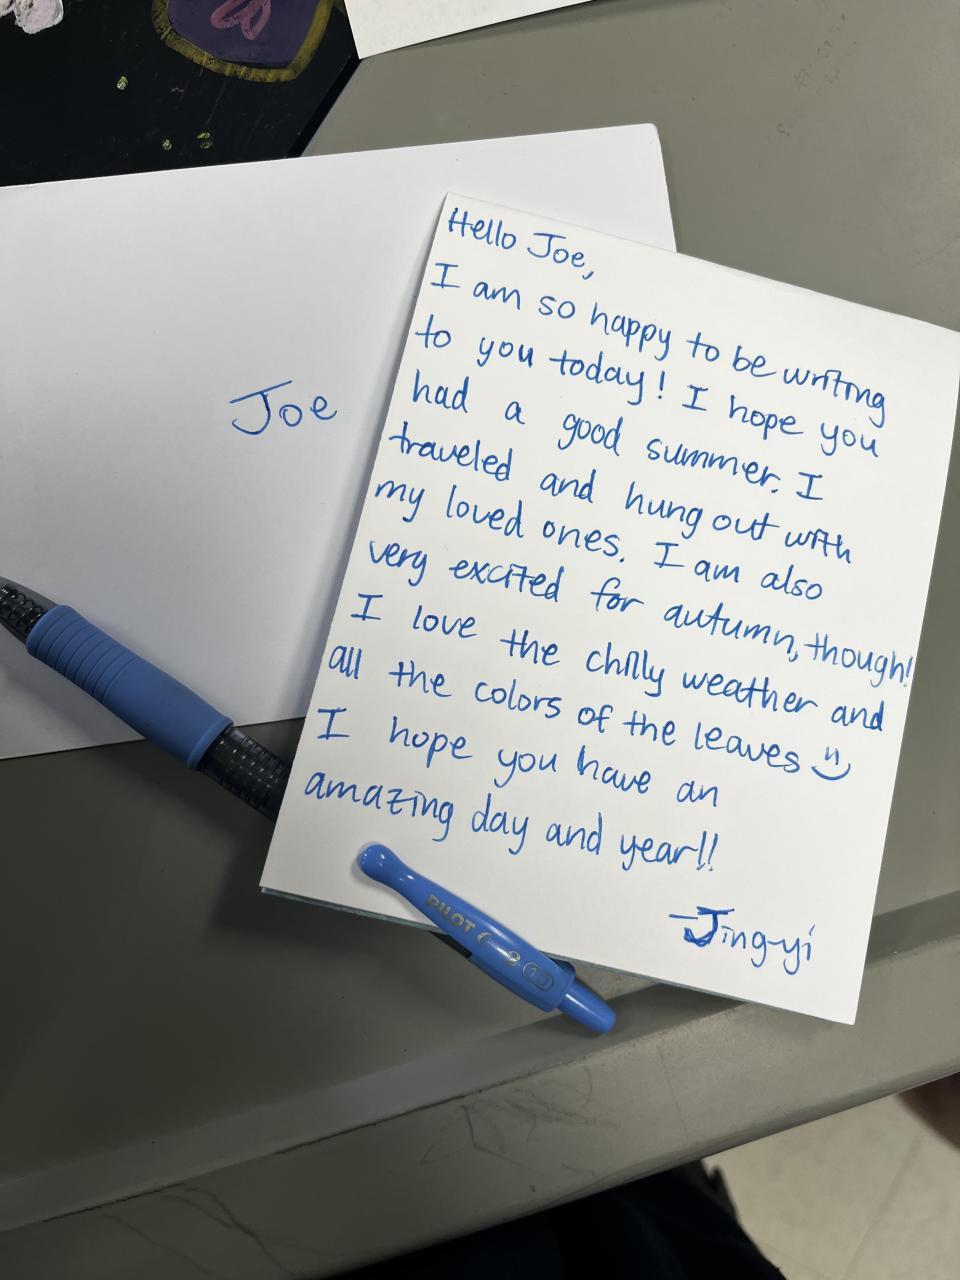 Joe
Hello Joe,
I am so happy to be writing
to you today! I hope you
had a good summer. I
traveled and hung out with
my loved ones. I am also
very excited for autumn, though!
I love the chilly weather and
all the colors of the leaves
I hope you have an
amazing day and year!!
-Jing-yi
PILOT G2 10